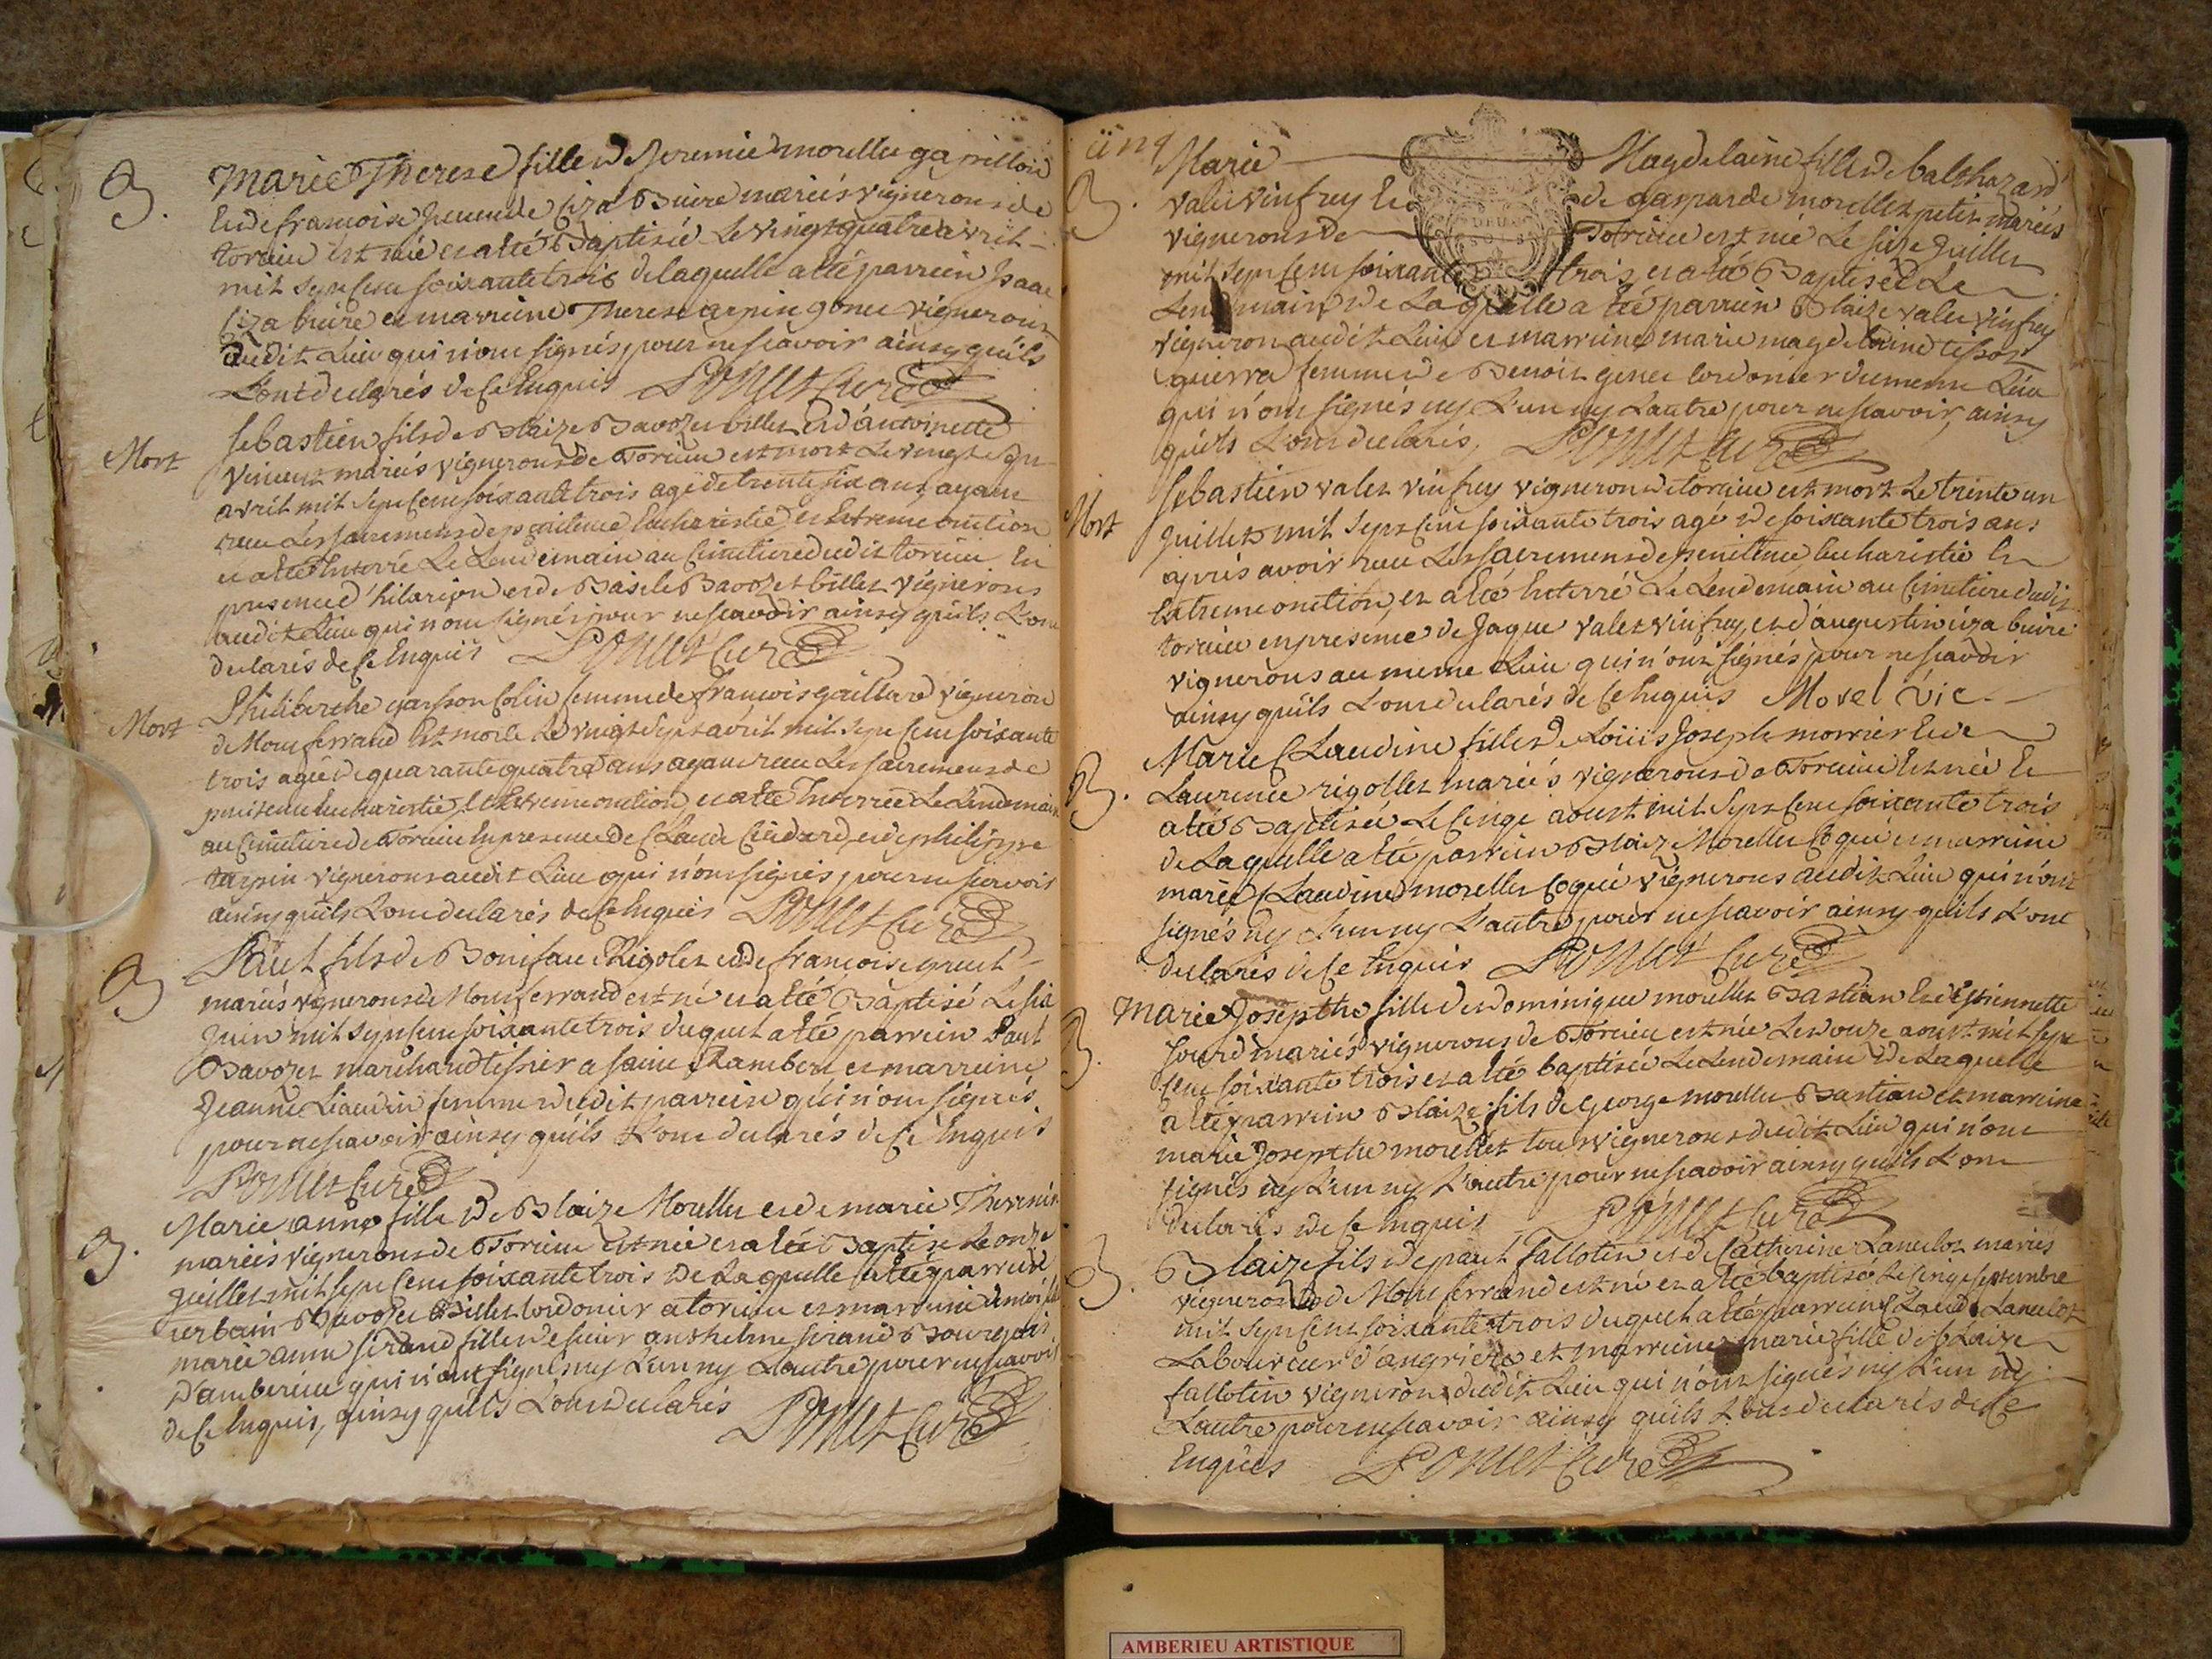 B.
Marie Therese fille de Jeremie morellet gapillon
et de francoise femme de Ciza Buire mariés vignerons de
torcieu est née et a été Baptisée Le vingt quatre avril
mil sept cent soixante trois de laquelle a été parrein Isaac
Ciza buire et marreine Therese genet vignerons
dudit Lieu qui n'ont signés pour ne scavoir ainsy qu'ils
L'ont declarés de ce Enquis Ponet Curé
Mort
Sebastien fils de Blaize Savozet billet et d'antoinette
Vincent mariés vignerons de Torcieu est mort Le vingt
avril mil sept cent soixante trois agé de trente six ans ayant
receu Les sacremens de penitence Eucharistie et Extreme onction
et a été Enterré Le Lendemain au Cimetiere dudit torcieu En
presence d'hilarion et de Basile Savozet billet vignerons
audit Lieu qui n'ont signés pour ne scavoir ainsy qu'ils L'ont
declarés de ce Enquis Ponet Curé
Mort
Philiberthe Colin femme de francois gaillard vigneron
de Montferrand Est morte Le vingt sept avril mil sept cent soixante
trois agée de quarante quatre ans ayant receu Les sacremens de
penitence Eucharistie et Extreme onction et a été Enterrée Le Lendemain
au Cimetiere de Torcieu En presence de Claude et de philippe
tarpin vignerons audit Lieu qui n'ont signés pour ne scavoir
ainsy qu'ils L'ont declarés de ce Enquis Ponet Curé
B
Paul fils de Boniface Rigolet et de francoise
mariés vignerons de Montferrand est né et a été Baptisé Le six
Juin mil sept cent soixante trois duquel a été parrein Paul
Savozet marchand tissier a saint Rambert et marreine
Jeanne Liaudin femme dudit parrein qui n'ont signés
pour ne scavoir ainsy qu'ils L'ont declarés de ce Enquis
Ponet Curé
B.
Marie anne fille de Blaize Morellet et de marie Thevenin
mariés vignerons de Torcieu est née et a été Baptisée Le onze
Juillet mil sept cent soixante trois de Laquelle a été parrein
urbain Savozet Billet Cordonier a torcieu et marreine
marie anne sirand fille de sieur anthelme sirand Bourgeois
d'amberieu qui n'ont signés ny L'un ny L'autre pour ne scavoir
de ce Enquis, ainsy qu'ils L'ont declarés Ponet Curé
B.
Marie Magdelaine fille de balthazard
valet vinfrey Et de gasparde morellet petit mariés
vignerons de Torcieu est née Le seize Juillet
mil sept cent soixante trois et a été Baptisée Le
Lendemain de Laquelle a été parrein Blaize valet vinfrey
vigneron audit Lieu et marreine marie magdelaine tesson
guierra femme de Benoit genet Cordonier du meme Lieu
qui n'ont signés ny L'un ny L'autre pour ne scavoir, ainsy
qu'ils L'ont declarés, Ponet Curé
Mort
Sebastien valet vinfrey vigneron de torcieu est mort Le trente un
Juillet mil sept cent soixante trois agé de soixante trois ans
après avoir receu Les sacremens de penitence Eucharistie Et
Extreme onction, et a été Enterré Le Lendemain au Cimetiere dudit
torcieu en presence de Jaque valet vinfrey, et d'augustin ciza buire
vignerons au meme Lieu qui n'ont signés pour ne scavoir
ainsy qu'ils L'ont declarés de ce Enquis Morel vic.
B.
Marie Claudine fille de Loüis Joseph morrier Et de
Laurence rigollet mariés vignerons de Torcieu Est née Et
a été Baptisée Le Cinq aoust mil sept cent soixante trois
de Laquelle a été parrein Blaize Morellet Coqué et marreine
marie Claudine morellet Coqué vignerons audit Lieu qui n'ont
signés ny L'un ny L'autre pour ne scavoir ainsy qu'ils L'ont
declarés de ce Enquis Ponet Curé
B.
Marie Josepthe fille de dominique morellet Bastian Et d'Estiennette
Jourd mariés vignerons de Torcieu est née Le douze aoust mil sept
cent soixante trois et a été baptisée Le Lendemain de Laquelle
a été parrein Blaize fils de George morellet Bastian et marreine
marie Josepthe morellet tous vignerons dudit Lieu qui n'ont
signés ny L'un ny L'autre pour ne scavoir ainsy qu'ils L'ont
declarés de ce Enquis Ponet Curé
B.
Blaize fils de paul fallotin et de Catherine Lancelot mariés
vignerons de Montferrand est né et a été baptisé Le Cinq septembre
mil sept cent soixante trois duquel a été parrein Claude Lancelot
Laboureur d'angrieres et marreine marie fille de blaize
fallotin vignerons dudit Lieu qui n'ont signés ny L'un ny
L'autre pour ne scavoir ainsy qu'ils L'ont declarés de ce
Enquis Ponet Curé
AMBERIEU ARTISTIQUE